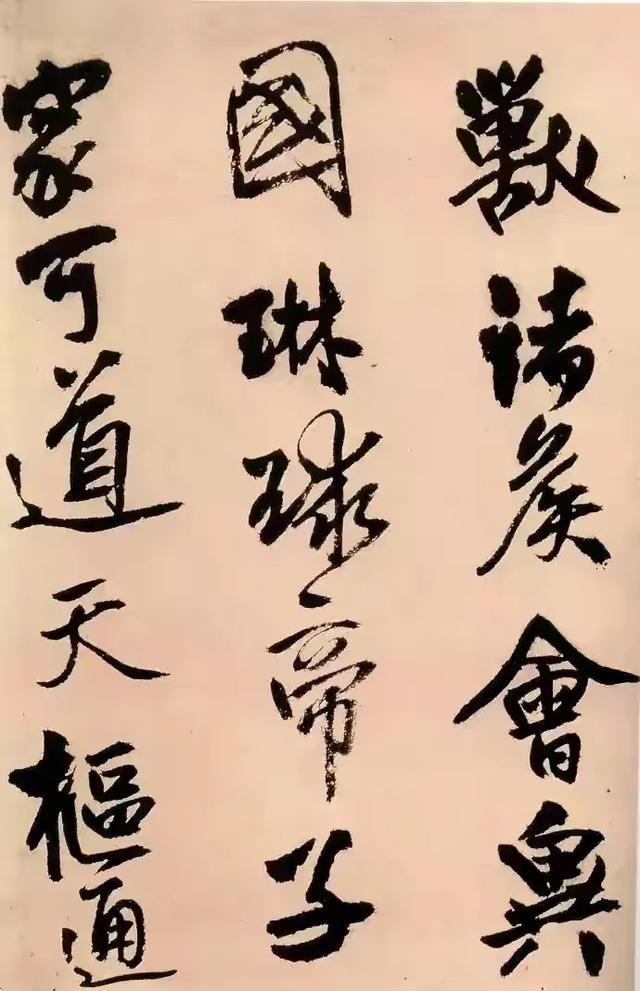 獸諸侯會興
國琳球帝子
家可道天樞通